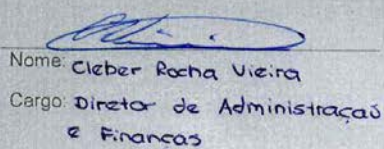 Nome: Cleber Rocha Vieira
Cargo: Diretor de Administraçaõ
e Finanças